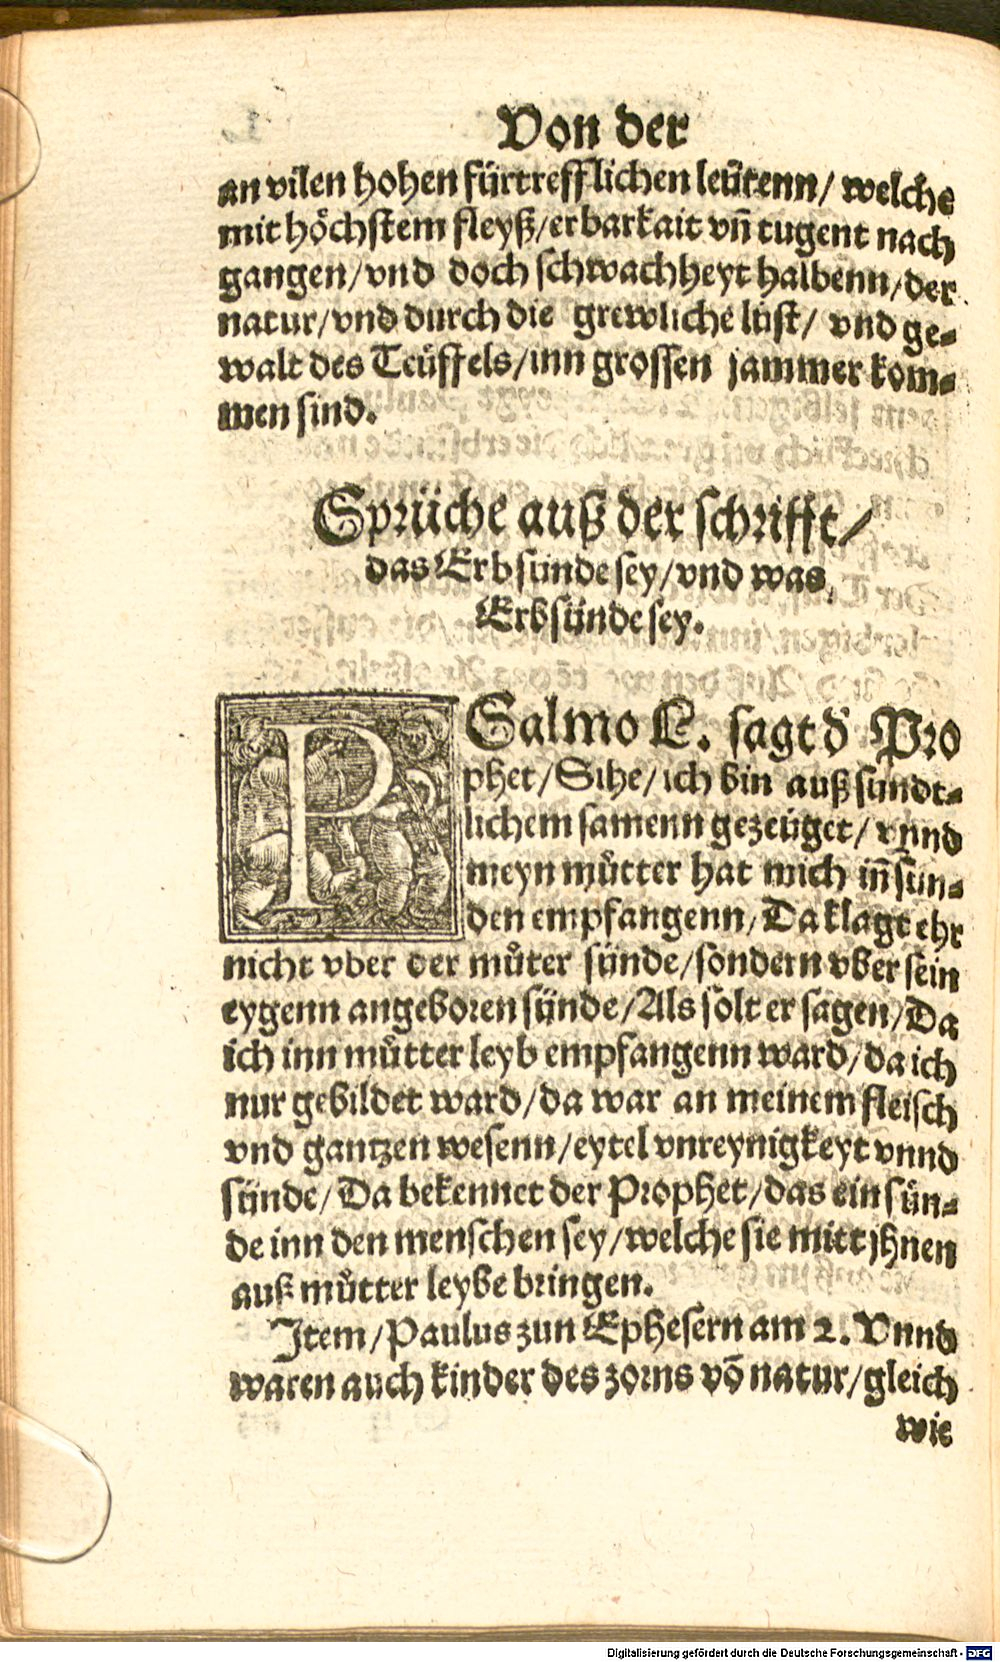 Von der
an vilen hohen fürtrefflichen leütenn/ welche
mit höchstem fleyß/erbarkait vñ tugent nach
gangen/vnd doch schwachheyt halbenn/der
natur/vnd durch die grewliche list/ vnd ge-
walt des Teüffels/inn grossen jammer kom-
men sind.
Sprüche auß der schrifft/
das Erbsünde sey/vnd was
Erbsünde sey.
PSalmo L. sagt d̕ Pro
phet/Sihe/ich bin auß sündt-
lichem samenn gezeüget/ vnnd
meyn můtter hat mich iñ sün-
den empfangenn/Da klagt ehr
nicht vber der můter sünde/sondern vber sein
eygenn angeboren sünde/Als solt er sagen/Da
ich inn můtter leyb empfangenn ward/da ich
nur gebildet ward/da war an meinem fleisch
vnd gantzen wesenn/eytel vnreynigkeyt vnnd
sünde/Da bekennet der Prophet/das ein sün-
de inn den menschen sey/welche sie mitt jhnen
auß můtter leybe bringen.
Item/Paulus zun Ephesern am 2. Vnnd
waren auch kinder des zorns võ natur/gleich
wie
Digitalisierung gefördert durch die Deutsche Forschungsgemeinschaft - DFG